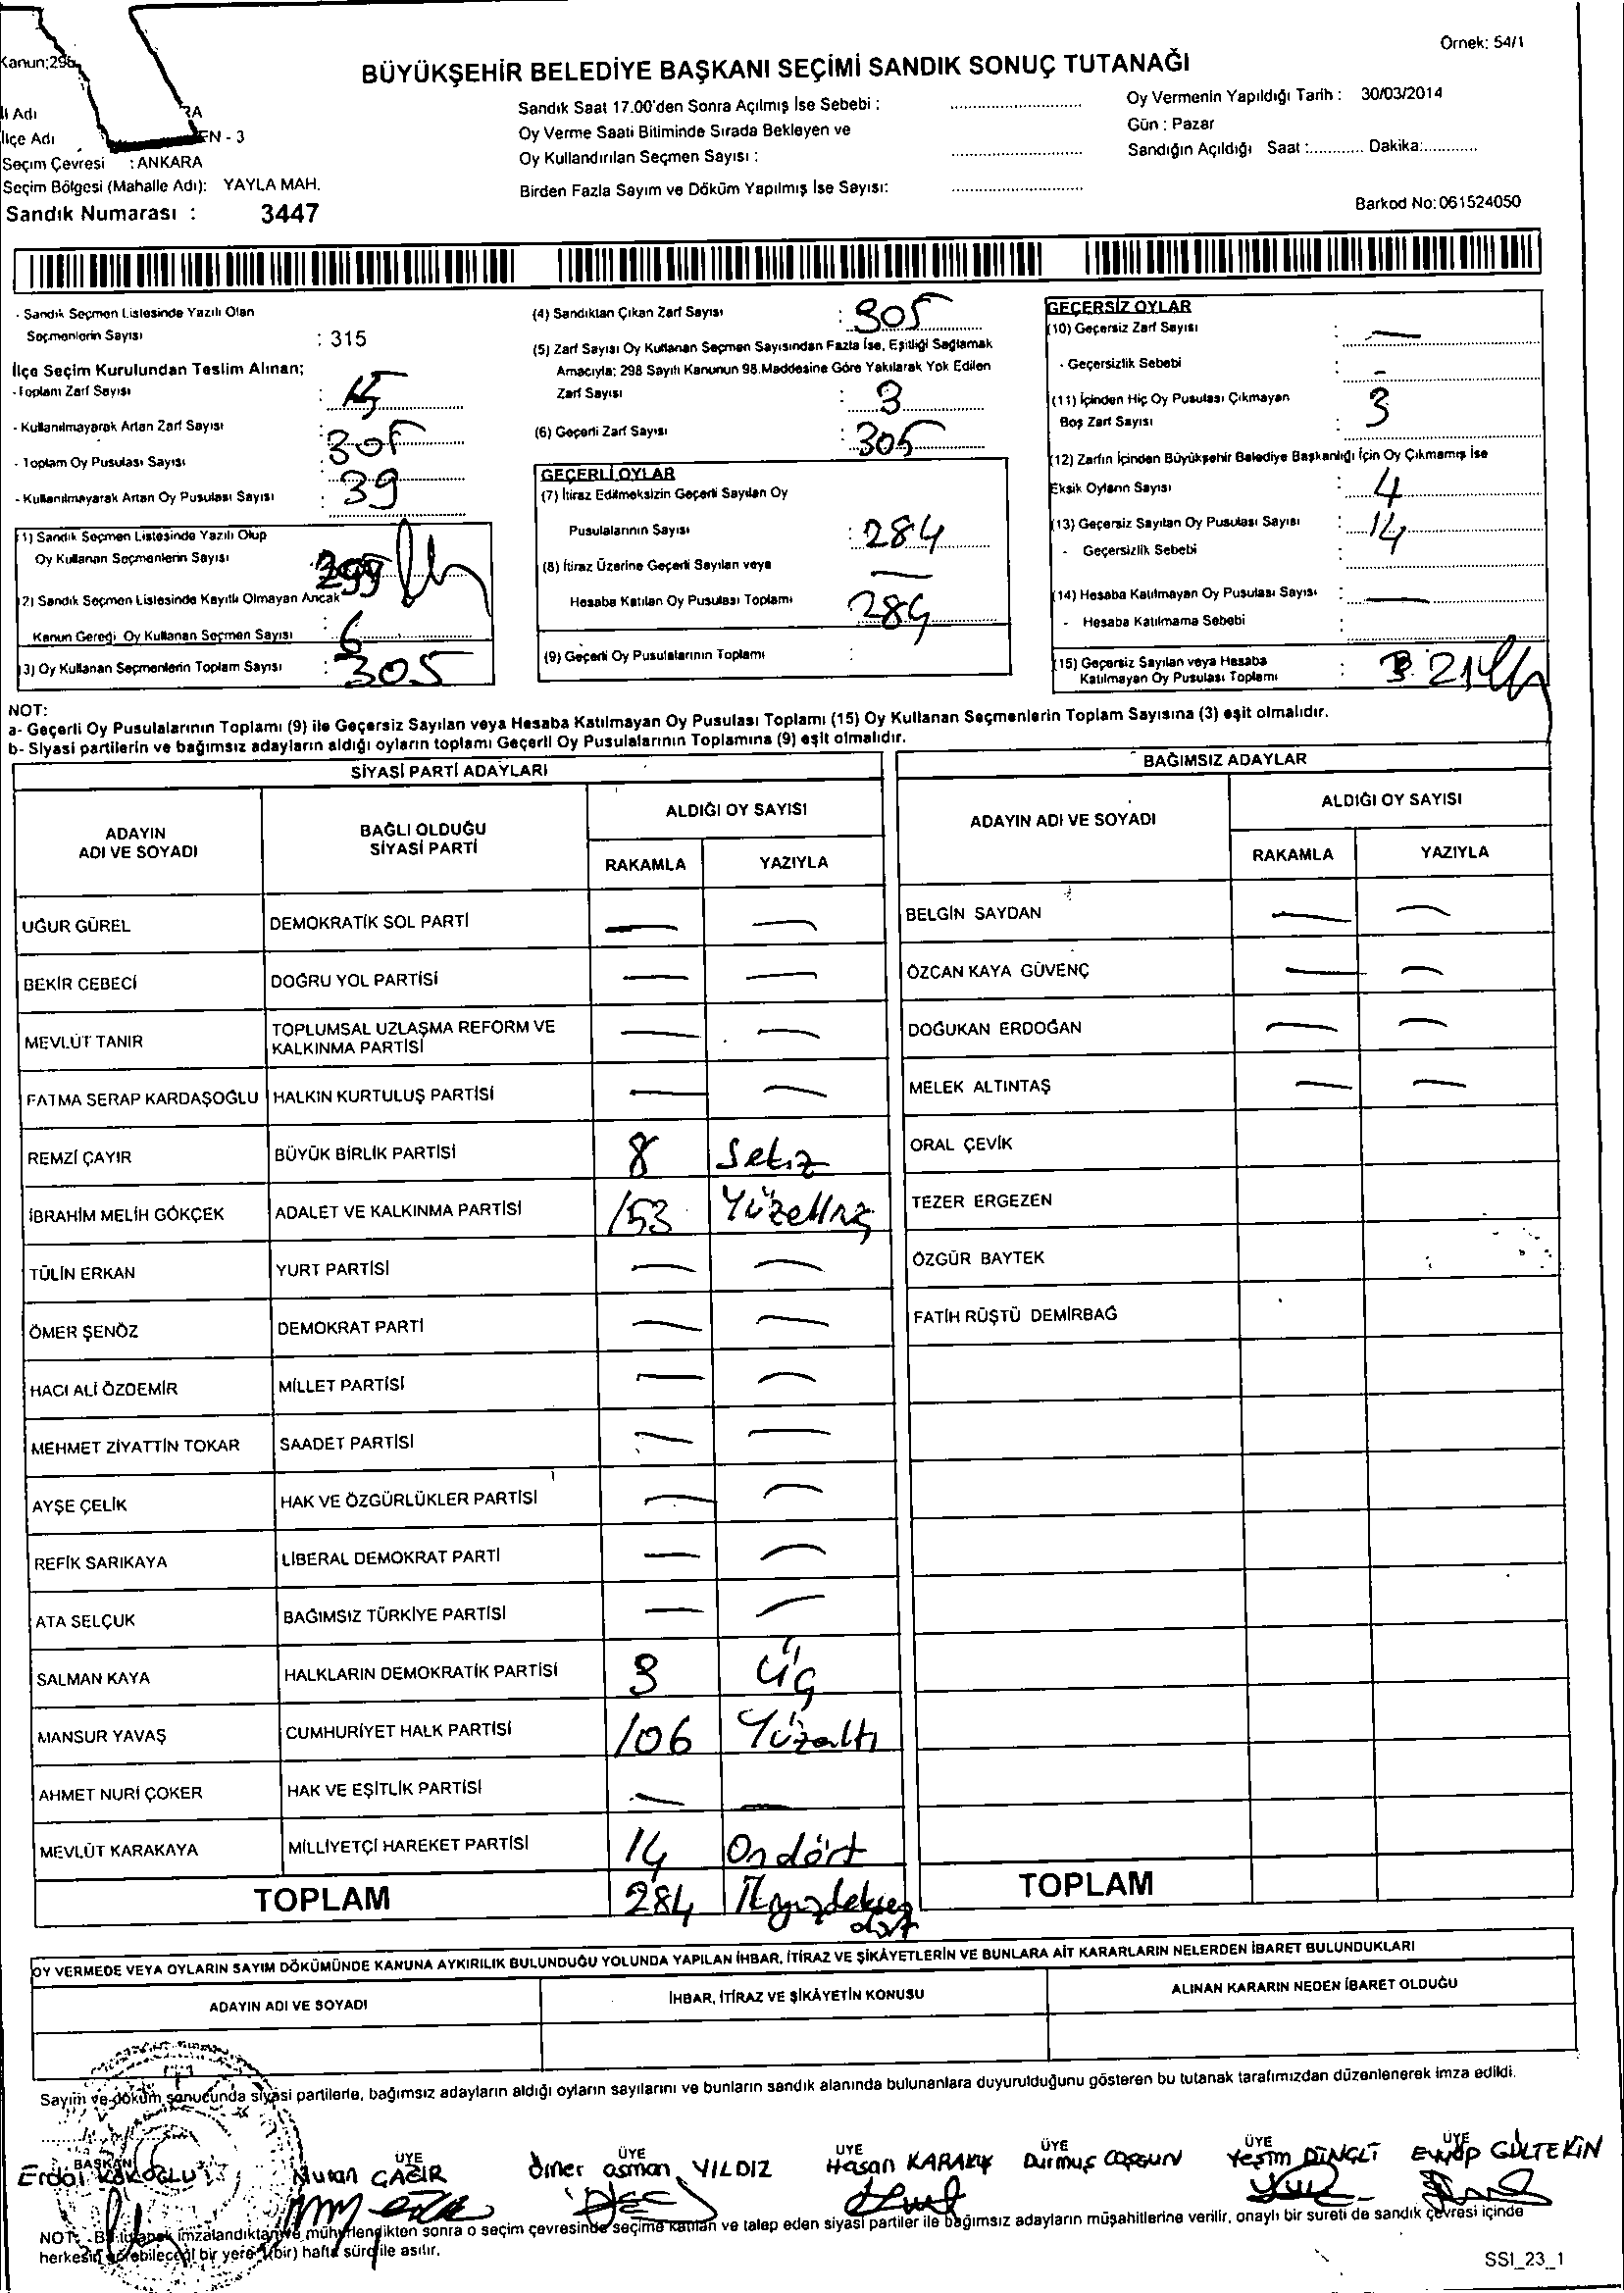 Örnek: 54/1
Kanun:298
BÜYÜKŞEHİR BELEDİYE BAŞKANI SEÇİMİ SANDIK SONUÇ TUTANAĞI
İl Adı RA
İlçe Adı EN - 3
Seçim Çevresi : ANKARA
Seçim Bölgesi (Mahalle Adı): YAYLA MAH.
Sandık Numarası : 3447
Sandık Saat 17.00'den Sonra Açılmış İse Sebebi : ..........................
Oy Verme Saati Bitiminde Sırada Bekleyen ve
Oy Kullandırılan Seçmen Sayısı : ..........................
Birden Fazla Sayım ve Döküm Yapılmış İse Sayısı: ..........................
Oy Vermenin Yapıldığı Tarih : 30/03/2014
Gün : Pazar
Sandığın Açıldığı Saat :............ Dakika:............
Barkod No:061524050
- Sandık Seçmen Listesinde Yazılı Olan
Seçmenlerin Sayısı : 315
İlçe Seçim Kurulundan Teslim Alınan;
- Toplam Zarf Sayısı :
- Kullanılmayarak Artan Zarf Sayısı : 305
- Toplam Oy Pusulası Sayısı :
- Kullanılmayarak Artan Oy Pusulası Sayısı : 39
(1) Sandık Seçmen Listesinde Yazılı Olup
Oy Kullanan Seçmenlerin Sayısı 299
(2) Sandık Seçmen Listesinde Kayıtlı Olmayan Ancak
Kanun Gereği Oy Kullanan Seçmen Sayısı : 6
(3) Oy Kullanan Seçmenlerin Toplam Sayısı : 305
(4) Sandıktan Çıkan Zarf Sayısı : 305
(5) Zarf Sayısı Oy Kullanan Seçmen Sayısından Fazla İse, Eşitliği Sağlamak
Amacıyla; 298 Sayılı Kanunun 98.Maddesine Göre Yakılarak Yok Edilen
Zarf Sayısı : 3
(6) Geçerli Zarf Sayısı : 305
GEÇERLİ OYLAR
(7) İtiraz Edilmeksizin Geçerli Sayılan Oy
Pusulalarının Sayısı : 284
(8) İtiraz Üzerine Geçerli Sayılan veya —
Hesaba Katılan Oy Pusulası Toplamı 284
(9) Geçerli Oy Pusulalarının Toplamı :
GEÇERSİZ OYLAR
(10) Geçersiz Zarf Sayısı : —
- Geçersizlik Sebebi : -
(11) İçinden Hiç Oy Pusulası Çıkmayan
Boş Zarf Sayısı : 3
(12) Zarfın İçinden Büyükşehir Belediye Başkanlığı İçin Oy Çıkmamış İse
Eksik Oyların Sayısı : 4
(13) Geçersiz Sayılan Oy Pusulası Sayısı : 14
- Geçersizlik Sebebi :
(14) Hesaba Katılmayan Oy Pusulası Sayısı : —
- Hesaba Katılmama Sebebi :
(15) Geçersiz Sayılan veya Hesaba
Katılmayan Oy Pusulası Toplamı : 21
NOT:
a- Geçerli Oy Pusulalarının Toplamı (9) ile Geçersiz Sayılan veya Hesaba Katılmayan Oy Pusulası Toplamı (15) Oy Kullanan Seçmenlerin Toplam Sayısına (3) eşit olmalıdır.
b- Siyasi partilerin ve bağımsız adayların aldığı oyların toplamı Geçerli Oy Pusulalarının Toplamına (9) eşit olmalıdır.
SİYASİ PARTİ ADAYLARI
ADAYIN ADI VE SOYADI BAĞLI OLDUĞU SİYASİ PARTİ ALDIĞI OY SAYISI
RAKAMLA YAZIYLA
UĞUR GÜREL DEMOKRATİK SOL PARTİ — —
BEKİR CEBECİ DOĞRU YOL PARTİSİ — —
MEVLÜT TANIR TOPLUMSAL UZLAŞMA REFORM VE KALKINMA PARTİSİ — —
FATMA SERAP KARDAŞOĞLU HALKIN KURTULUŞ PARTİSİ — —
REMZİ ÇAYIR BÜYÜK BİRLİK PARTİSİ 8 Sekiz
İBRAHİM MELİH GÖKÇEK ADALET VE KALKINMA PARTİSİ 153 Yüzelliüç
TÜLİN ERKAN YURT PARTİSİ — —
ÖMER ŞENÖZ DEMOKRAT PARTİ — —
HACI ALİ ÖZDEMİR MİLLET PARTİSİ — —
MEHMET ZİYATTİN TOKAR SAADET PARTİSİ — —
AYŞE ÇELİK HAK VE ÖZGÜRLÜKLER PARTİSİ — —
REFİK SARIKAYA LİBERAL DEMOKRAT PARTİ — —
ATA SELÇUK BAĞIMSIZ TÜRKİYE PARTİSİ — —
SALMAN KAYA HALKLARIN DEMOKRATİK PARTİSİ 3 Üç
MANSUR YAVAŞ CUMHURİYET HALK PARTİSİ 106 Yüzaltı
AHMET NURİ ÇOKER HAK VE EŞİTLİK PARTİSİ — —
MEVLÜT KARAKAYA MİLLİYETÇİ HAREKET PARTİSİ 14 Ondört
TOPLAM 284
BAĞIMSIZ ADAYLAR
ADAYIN ADI VE SOYADI ALDIĞI OY SAYISI
RAKAMLA YAZIYLA
BELGİN SAYDAN — —
ÖZCAN KAYA GÜVENÇ — —
DOĞUKAN ERDOĞAN — —
MELEK ALTINTAŞ — —
ORAL ÇEVİK
TEZER ERGEZEN
ÖZGÜR BAYTEK
FATİH RÜŞTÜ DEMİRBAĞ
TOPLAM
OY VERMEDE VEYA OYLARIN SAYIM DÖKÜMÜNDE KANUNA AYKIRILIK BULUNDUĞU YOLUNDA YAPILAN İHBAR, İTİRAZ VE ŞİKÂYETLERİN VE BUNLARA AİT KARARLARIN NELERDEN İBARET BULUNDUKLARI
ADAYIN ADI VE SOYADI İHBAR, İTİRAZ VE ŞİKÂYETİN KONUSU ALINAN KARARIN NEDEN İBARET OLDUĞU
Sayım ve döküm sonucunda siyasi partilerle, bağımsız adayların aldığı oyların sayılarını ve bunların sandık alanında bulunanlara duyurulduğunu gösteren bu tutanak tarafımızdan düzenlenerek imza edildi.
BAŞKAN ÜYE ÜYE ÜYE ÜYE ÜYE ÜYE
Erdal Ömer Osman YILDIZ Hasan Durmuş COŞKUN Yeşim DİNÇLİ Eyyüp GÜLTEKİN
NOT: Bu tutanak imzalandıktan ve mühürlendikten sonra o seçim çevresinde seçime katılan ve talep eden siyasi partiler ile bağımsız adayların müşahitlerine verilir, onaylı bir sureti de sandık çevresi içinde
herkesin görebileceği bir yere 1(bir) hafta süre ile asılır.
SSI_23_1